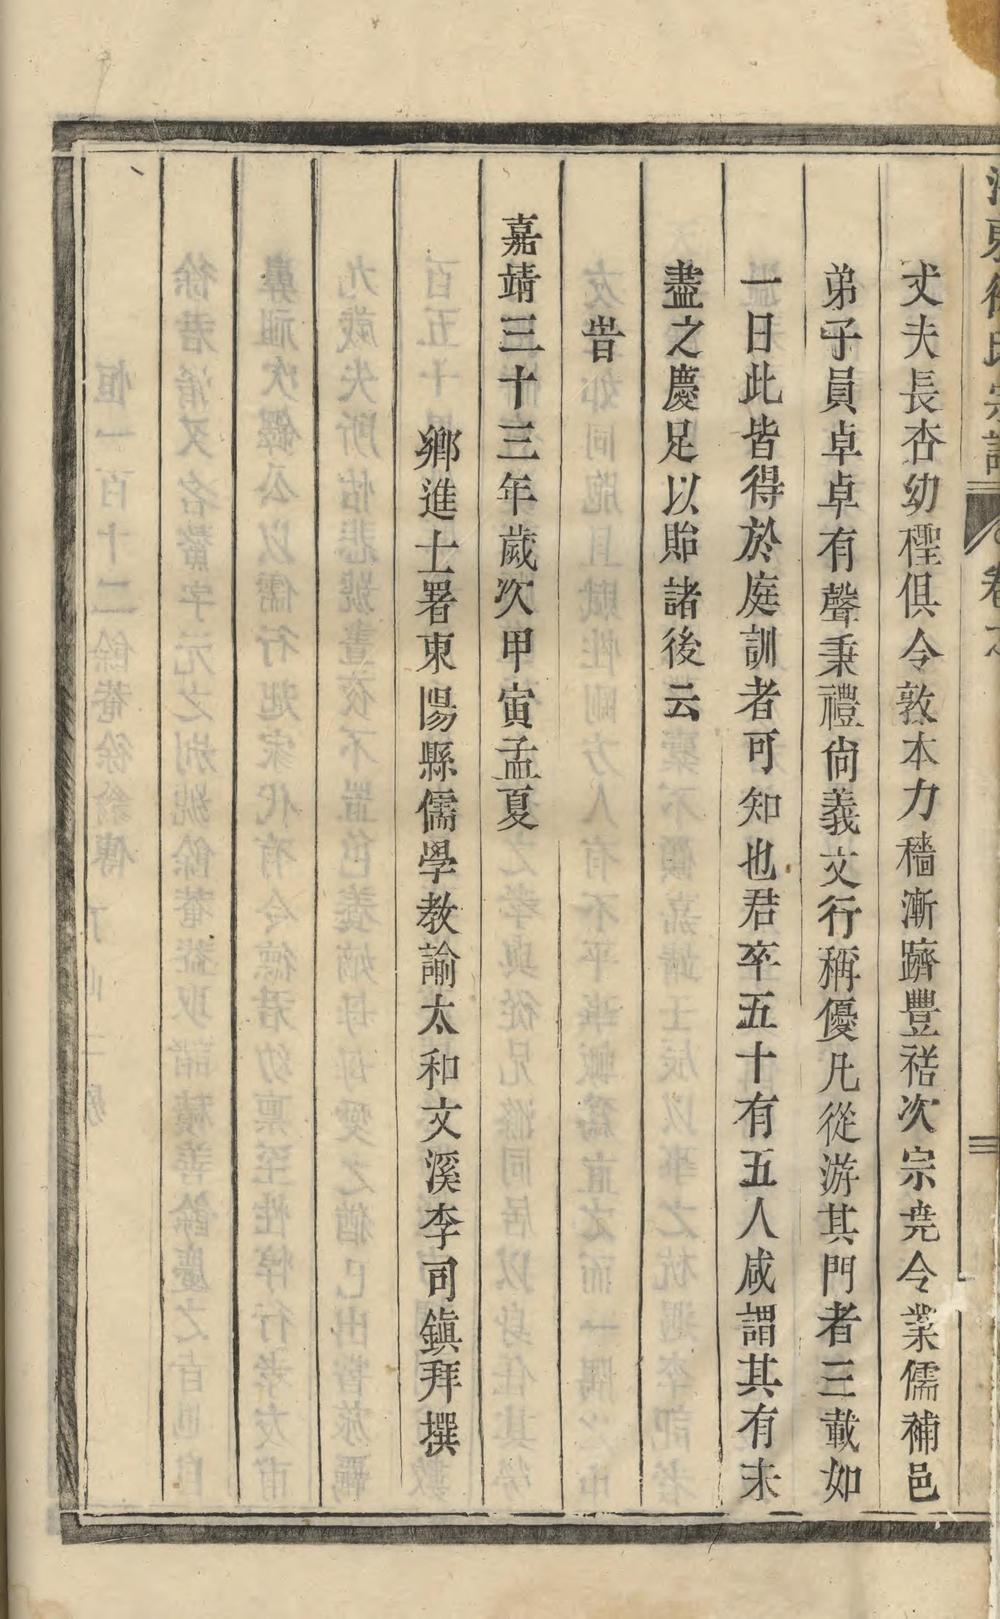 東徐氏宗譜 卷之
丈夫長杏幼檉俱令敦本力穡漸躋豐裕次宗堯令業儒補邑
弟子員卓卓有聲秉禮尙義文行稱優凡從游其門者三載如
一日此皆得於庭訓者可知也君卒五十有五人咸謂其有未
盡之慶足以貽諸後云
旹
嘉靖三十三年歲次甲寅孟夏
鄉進士署東陽縣儒學教諭太和文溪李司鎮拜撰